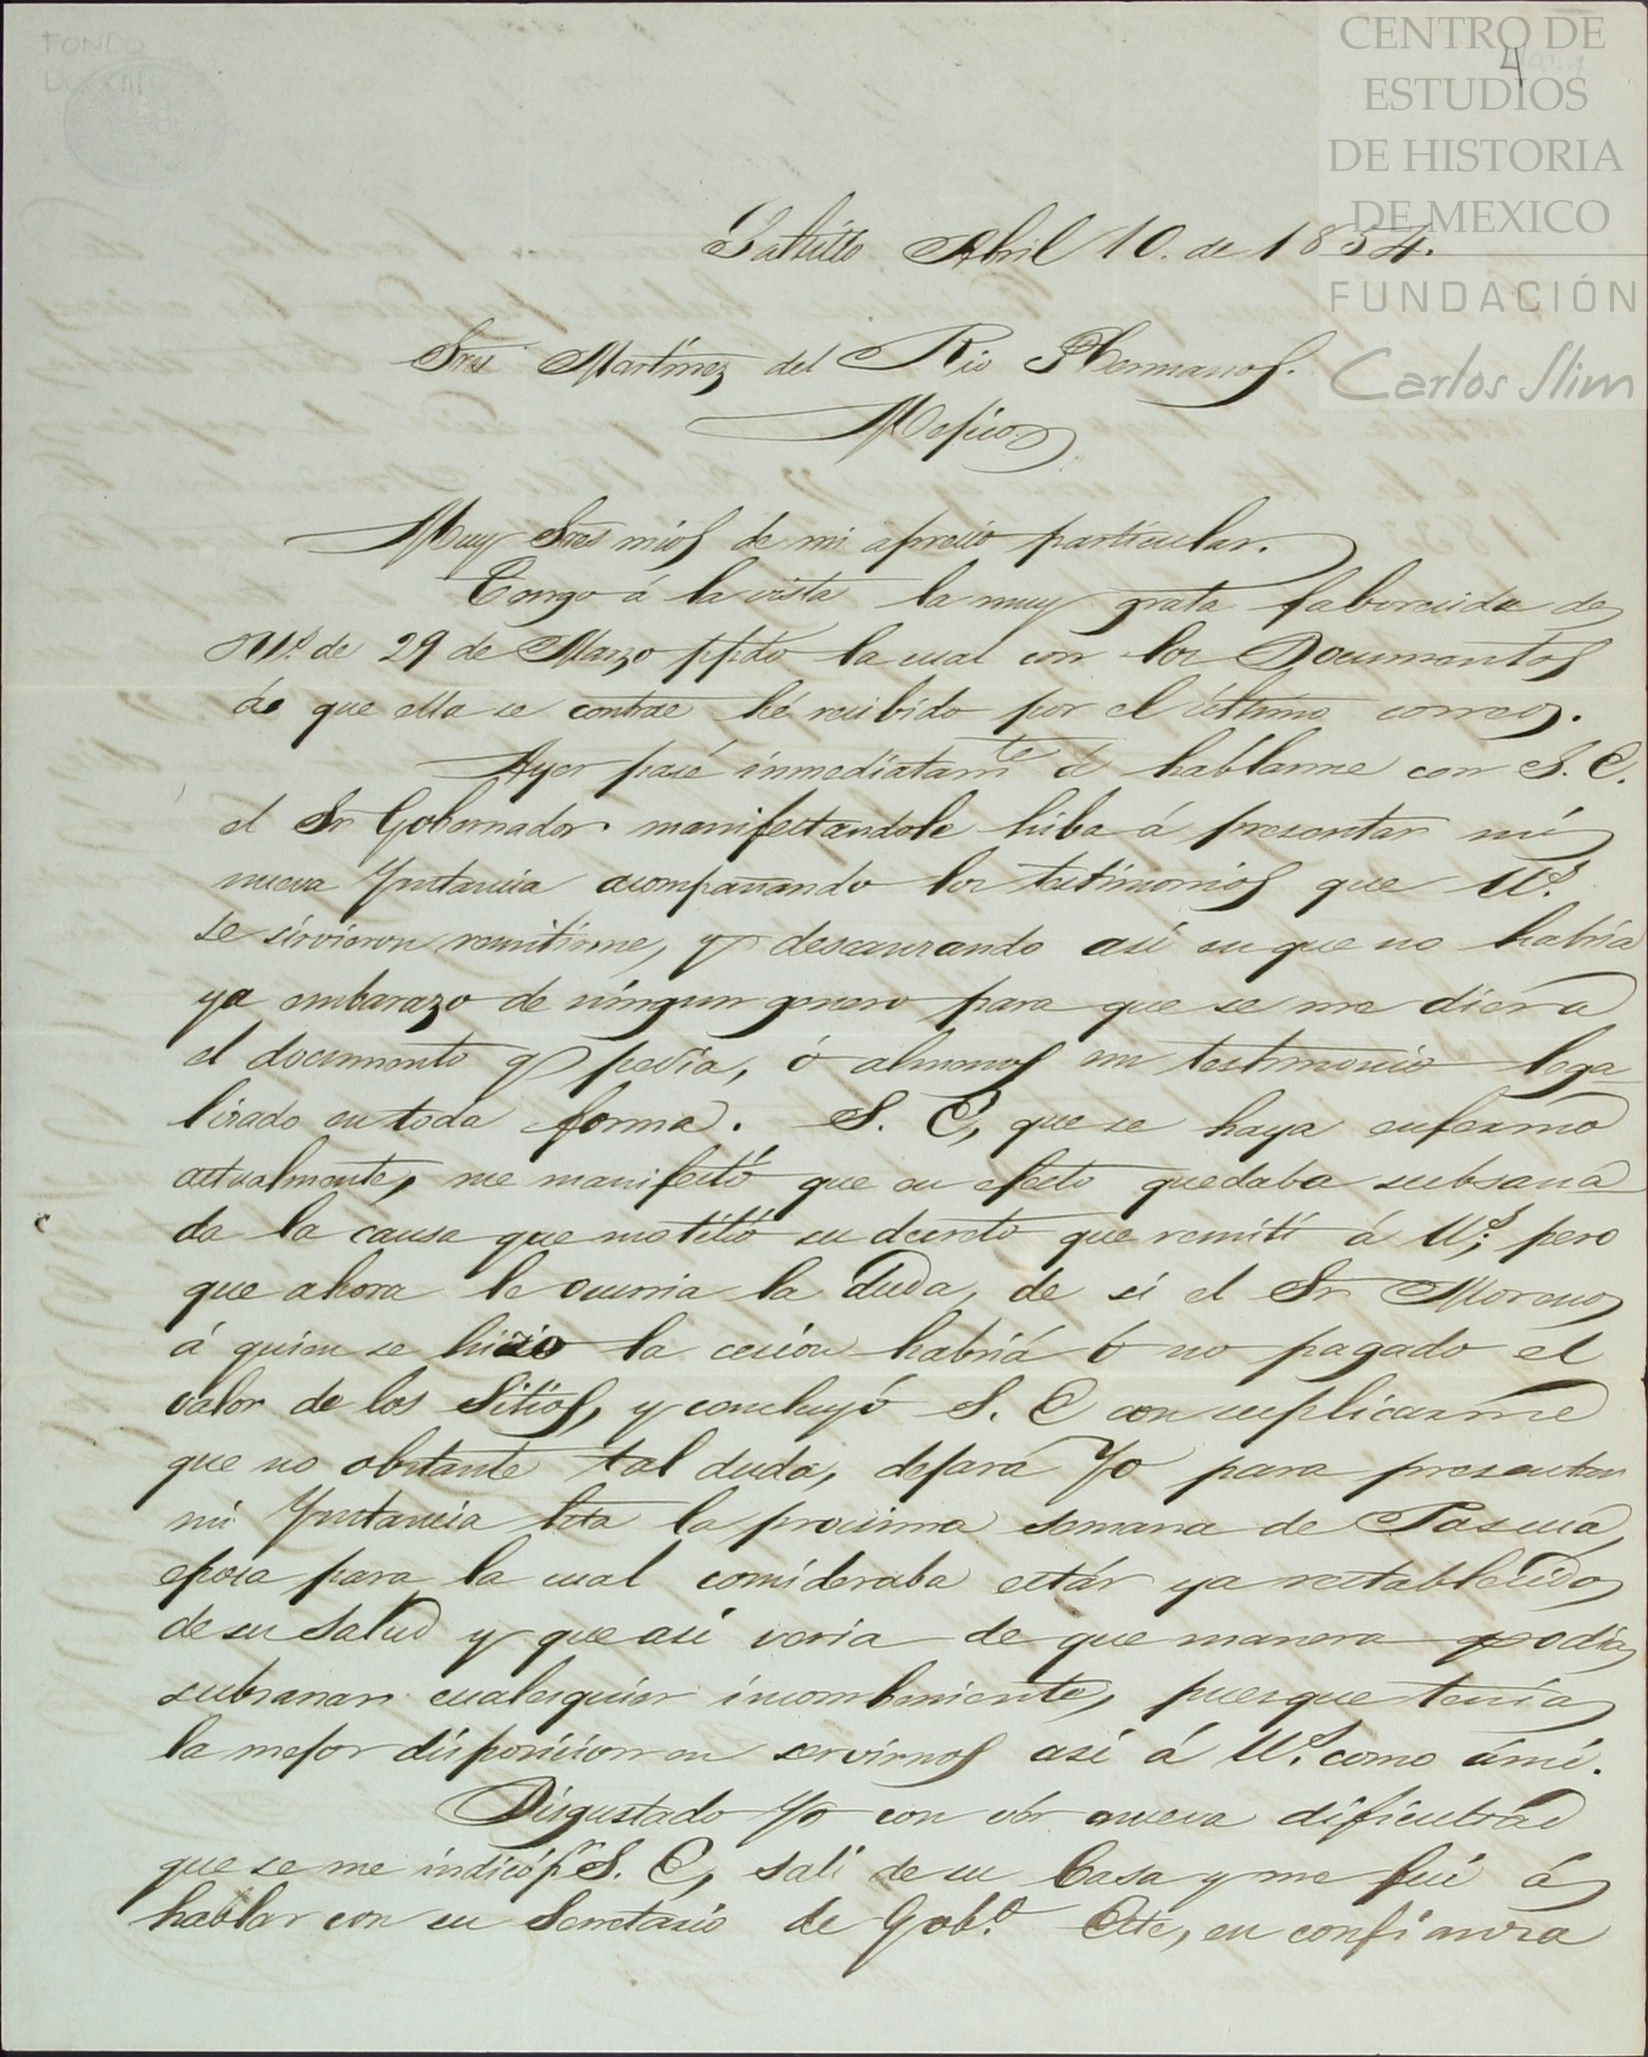 FONDO
CENTRO DE
ESTUDIOS
DE HISTORIA
DE MEXICO
FUNDACIÓN
Carlos Slim
4
Saltillo Abril 10. de 1854.
Sres Martínez del Rio Hermanos.
Mejico
Muy Sres mios de mi aprecio particular.
Tengo á la vista la muy grata faborecida de
Us. de 29 de Marzo ppdo la cual con los Documentos
de que ella se contrae hé recibido por el último correo.
Ayer pasé inmediatamte á hablarme con S. E.
el Sr Gobernador manifestandole hiba á presentar mi
nueva Ynstancia acompañando los testimonios que Us.
se sirvieron remitirme, y descansando asi en que no habria
ya embarazo de ningun genero para que se me diera
el documento q pedia, ó almenos un testimonio lega
lizado en toda forma. S. E, que se haya enfermo
actualmente, me manifestó que en efecto quedaba subsana
da la causa que motivó su decreto que remití á Us; pero
que ahora le ocurria la duda, de si el Sr Moreno
á quien se hizo la cecion habriá ó no pagado el
valor de los Sitios, y concluyó S. E con suplicarme
que no obstante tal duda, dejara Yo para presentar
mi Ynstancia hta la procsima semana de Pascua,
epoca para la cual consideraba estár ya restablecido
de su Salud y que asi veria de que manera podia
subsanar cualesquier incombeniente, puesque tenia
la mejor disposicion en servirnos asi á Us. como ámi.
Disgustado Yo con otr nueva dificultad
que se me indicó pr S. E, salí de su Casa y me fui á
hablar con su Secretario de Gobo. Este, en confianza